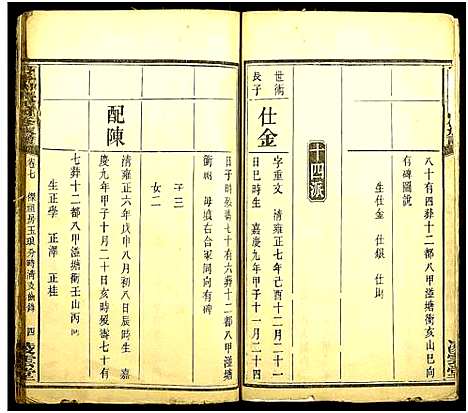 八十有四葬十二都八甲溢塘衝亥山巳向
有碑圖說
生仕金 仕銀 仕
十四派
世術
長子
仕金
字重文 清雍正七年己酉十二月二十一
日巳時生 嘉慶九年甲子十一月二十四
日子時歿壽七十有六葬十二都八甲溢塘
衝 母墳右合冢同向有碑
子三
女二
配陳
清雍正六年戊申八月初八日辰時生 嘉
慶九年甲子十月二十日亥時歿壽七十有
七葬十二都八甲溢塘衝壬山丙向
生正學 正澤 正桂
卷七
四